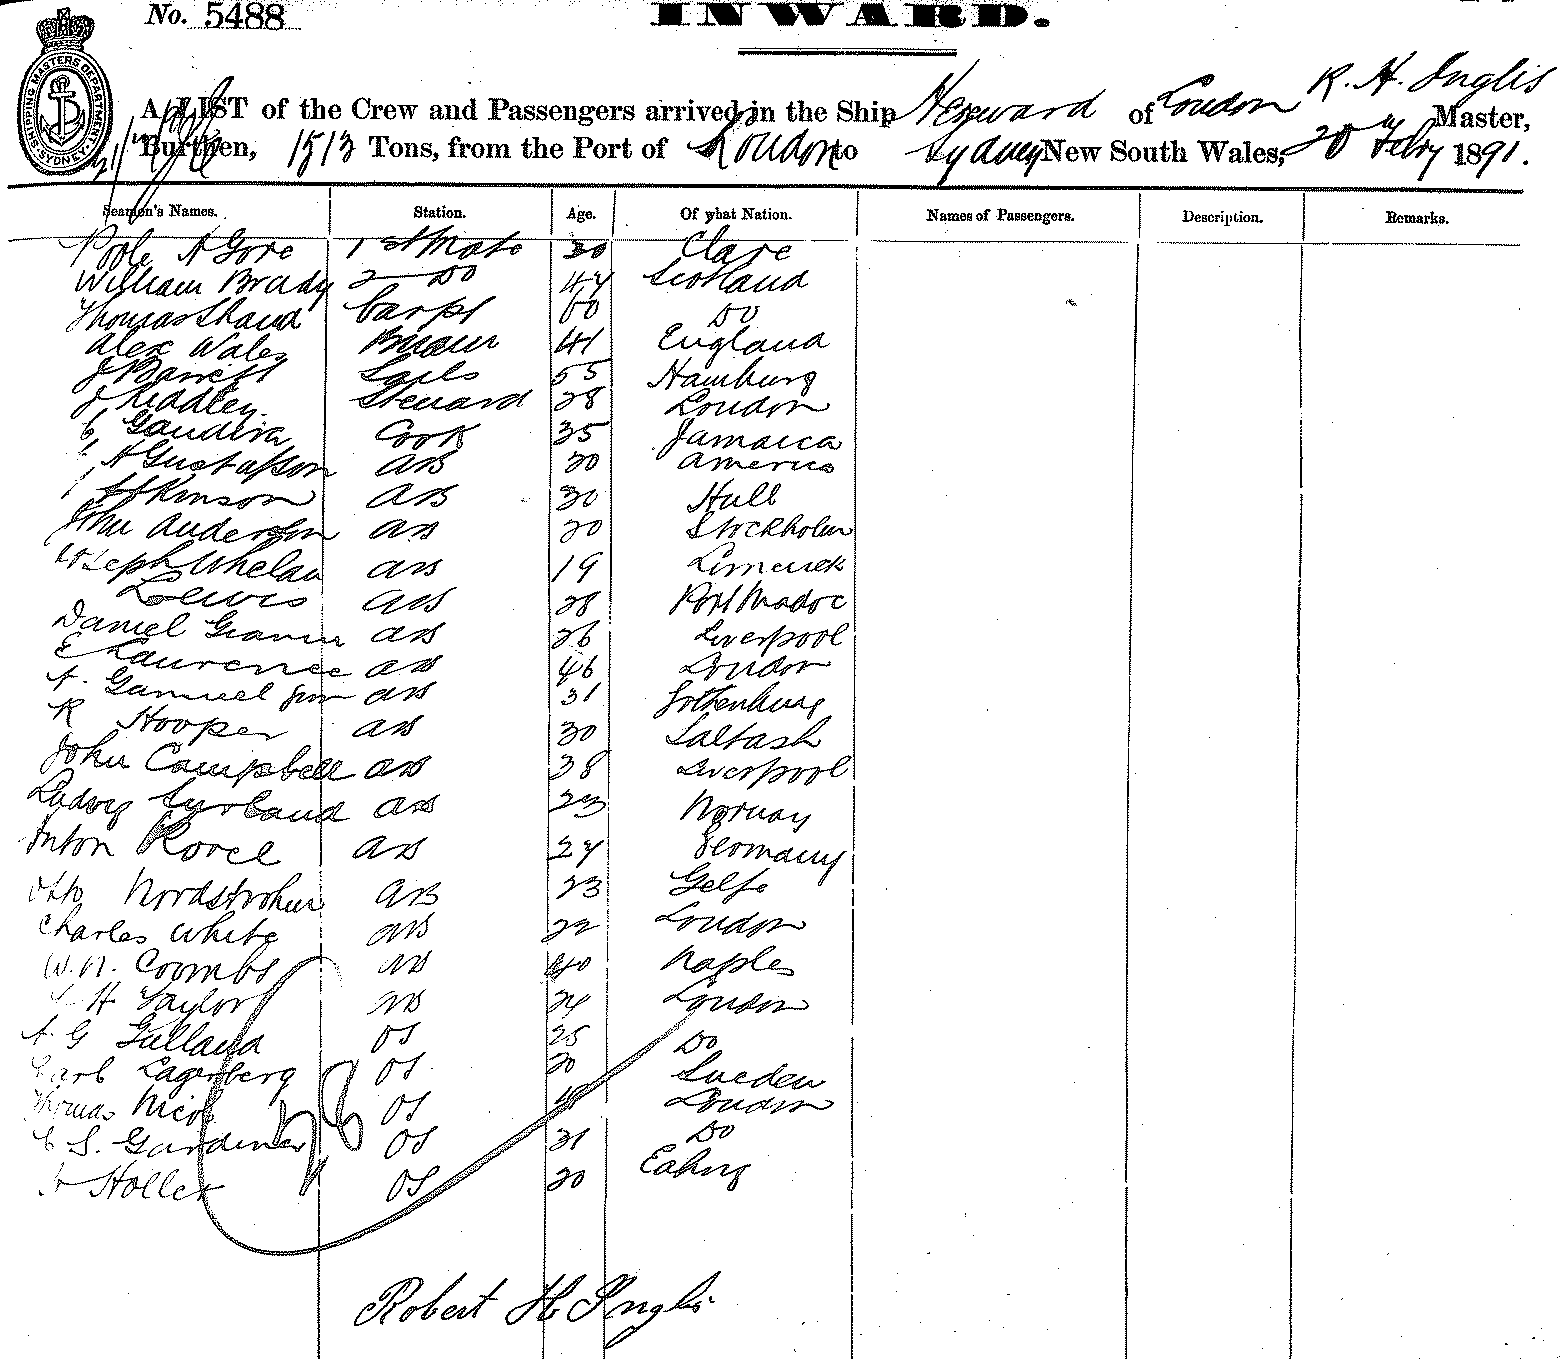 No. 5488
INWARD.
SHIPPING MASTERS DEPARTMENT SYDNEY
R. H. Inglis
A LIST of the Crew and Passengers arrived in the Ship Hereward of London Master,
Burthen, 1513 Tons, from the Port of London to Sydney New South Wales, 20th Feby 1891.
Seamen's Names. Station. Age. Of what Nation. Names of Passengers. Description. Remarks.
Poole A Gore 1st Mate 30 Clare
William Brady 2 Do 47 Scotland
Thomas Shand Carpt 60 Do
Alex Wales 41 England
J Barrett Sails 55 Hamburg
J Riddley. Steward 28 London
Cook 35 Jamaica
A Gustafson AB 20 America
Atkinson AB 30 Hull
John Anderson AB 20 Stockholm
Joseph Whelan AB 19 Limerick
Lewis AB 28 Port Madoc
Daniel AB 26 Liverpool
E Laurence AB 46 London
A. AB 31 Gothenburg
R Hooper AB 30 Saltash
John Campbell AB 38 Liverpool
Ludvig AB 23 Norway
Anton AB 27 Germany
Otto Nordstrohm AB 23 Gelfe
Charles White AB 22 London
W. N. Coombs AB 40 Naples
H Taylor AB 24 London
A. G Gulland OS 25 Do
Carl Lagerberg OS 20 Sweden
Thomas Nicol OS London
C S. Gardiner OS 21 Do
Holler OS 20 Ealing
28
Robert H Inglis